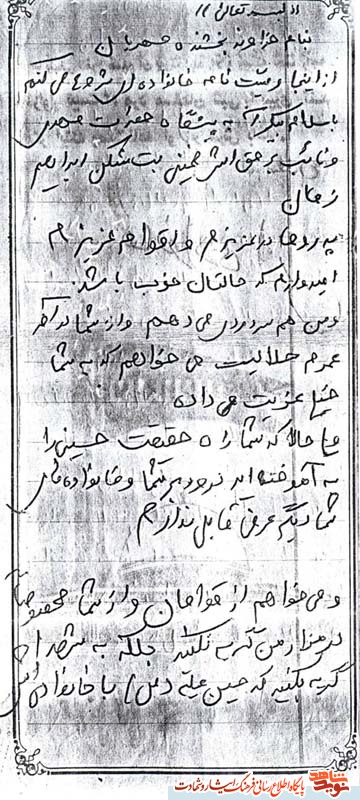 "بسمه تعالی"
بنام خداوند بخشنده مهربان
از اینجا وصیت نامه خانواده ای شروع می کنم
با سلام بیکران به پیشگاه حضرت مهدی
و نائب بر حق اش خمینی بت شکن ابراهیم
زمان
پدر و مادر عزیزم و اقوام عزیزم
امیدوارم که حالتان خوب باشد
و من هم سر دردی می دهم و از شما مادر که
عمرم حلالیت می خواهم که به شما
خیلی عزیت می داده
ما حالا که شما راه حقیقت حسینی را
به آموخته اید درود بر شما و خانواده های
شما دیگر عرض قابل ندارم
و می خواهم از خواهران و از شما مخصوصا
در مزار من گریه نکنید بلکه به
گریه بکنید که حسین علی (س) با خانواده اش
نوید شاهد
پایگاه اطلاع رسانی فرهنگ ایثار و شهادت